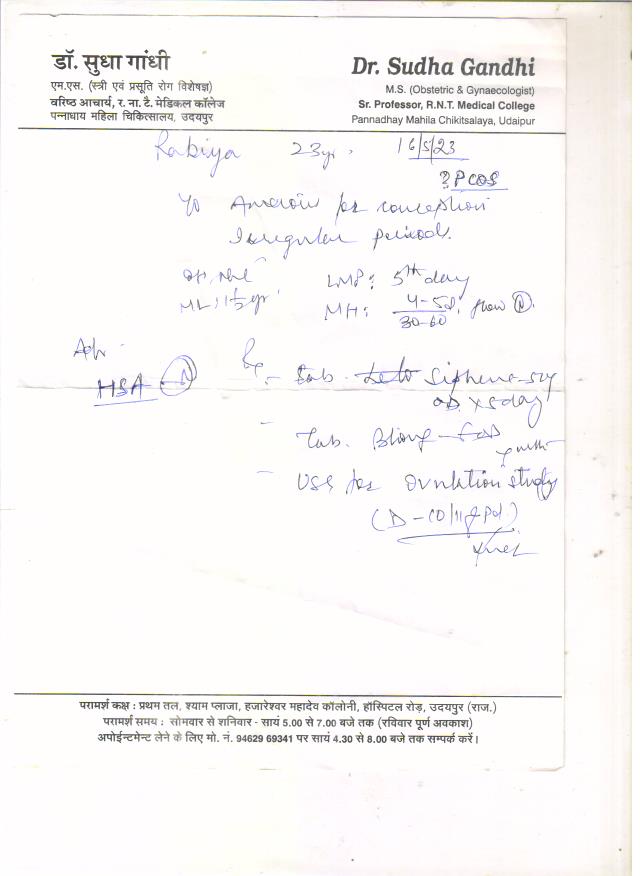 डॉ. सुधा गांधी
एम.एस. (स्त्री एवं प्रसूति रोग विशेषज्ञ)
वरिष्ठ आचार्य, र. ना. टै. मेडिकल कॉलेज
पन्नाधाय महिला चिकित्सालय, उदयपुर
Dr. Sudha Gandhi
M.S. (Obstetric & Gynaecologist)
Sr. Professor, R.N.T. Medical College
Pannadhay Mahila Chikitsalaya, Udaipur
Rabiya 23yr. 16/5/23
?PCOS
Anxious for conception
Irregular periods.
LMP: 5th day
MH: 4-5d, flow N
30-60
HSA - N
Rx
- Tab. Siphene
OD x 5day
- Tab.
- USG for Ovulation study
परामर्श कक्ष : प्रथम तल, श्याम प्लाजा, हजारेश्वर महादेव कॉलोनी, हॉस्पिटल रोड़, उदयपुर (राज.)
परामर्श समय : सोमवार से शनिवार - सायं 5.00 से 7.00 बजे तक (रविवार पूर्ण अवकाश)
अपोईन्टमेन्ट लेने के लिए मो. नं. 94629 69341 पर सायं 4.30 से 8.00 बजे तक सम्पर्क करें।